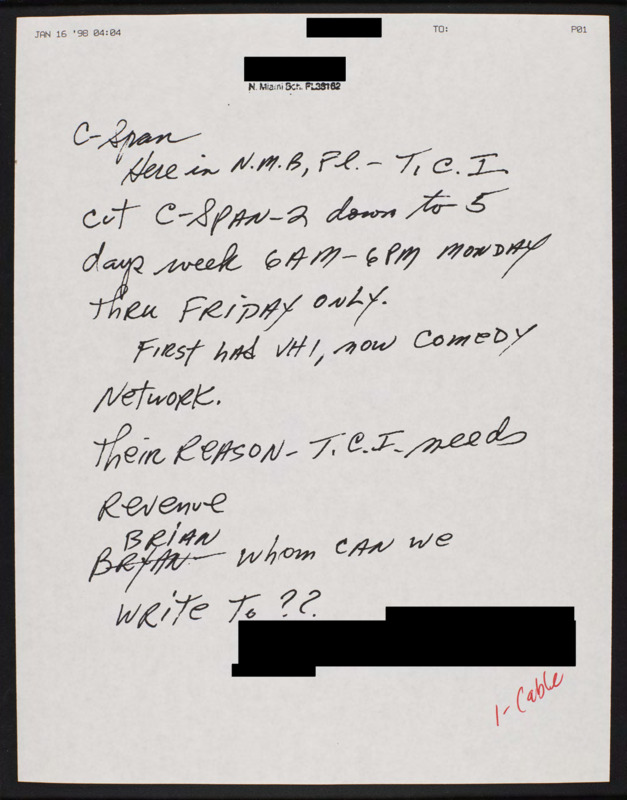 JAN 16 '98 04:04 TO: P01
N. Miami Bch. FL33162
C-Span
Here in N.M.B, Fl. - T.C.I
cut C-SPAN-2 down to 5
days week 6AM-6PM MONDAY
thru FRIDAY ONLY.
First had VH1, now Comedy
Network.
Their REASON - T.C.I. needs
Revenue
BRIAN
BRYAN whom CAN we
WRITE To ??
1- Cable